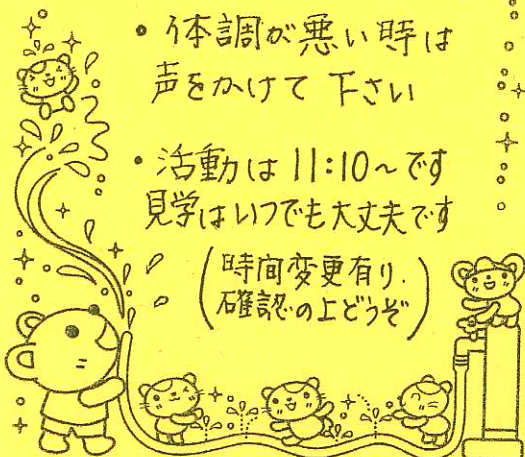 ・体調が悪い時は
声をかけて下さい
・活動は11:10~です
見学はいつでも大丈夫です
(時間変更有り.
確認の上どうぞ)